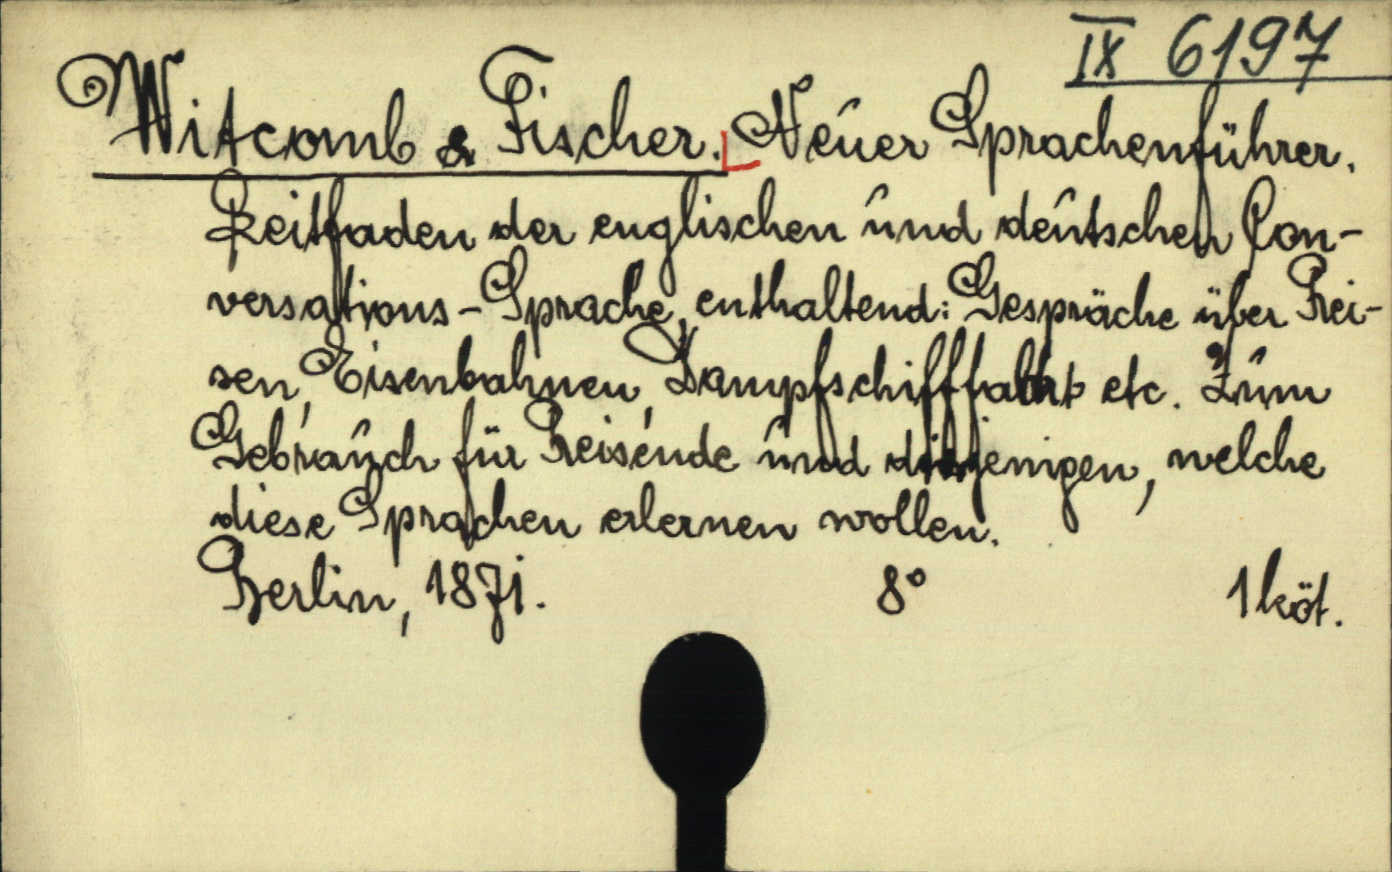 IX 6197
Witcomb & Fischer. Neuer Sprachenführer.
Leitfaden der englischen und deutschen Con-
versations-Sprache, enthaltend: Gespräche über Rei-
sen, Eisenbahnen, Dampfschifffahrt etc. Zum
Gebrauch für Reisende und diejenigen, welche
diese Sprachen erlernen wollen.
Berlin, 1871. 8° 1 köt.